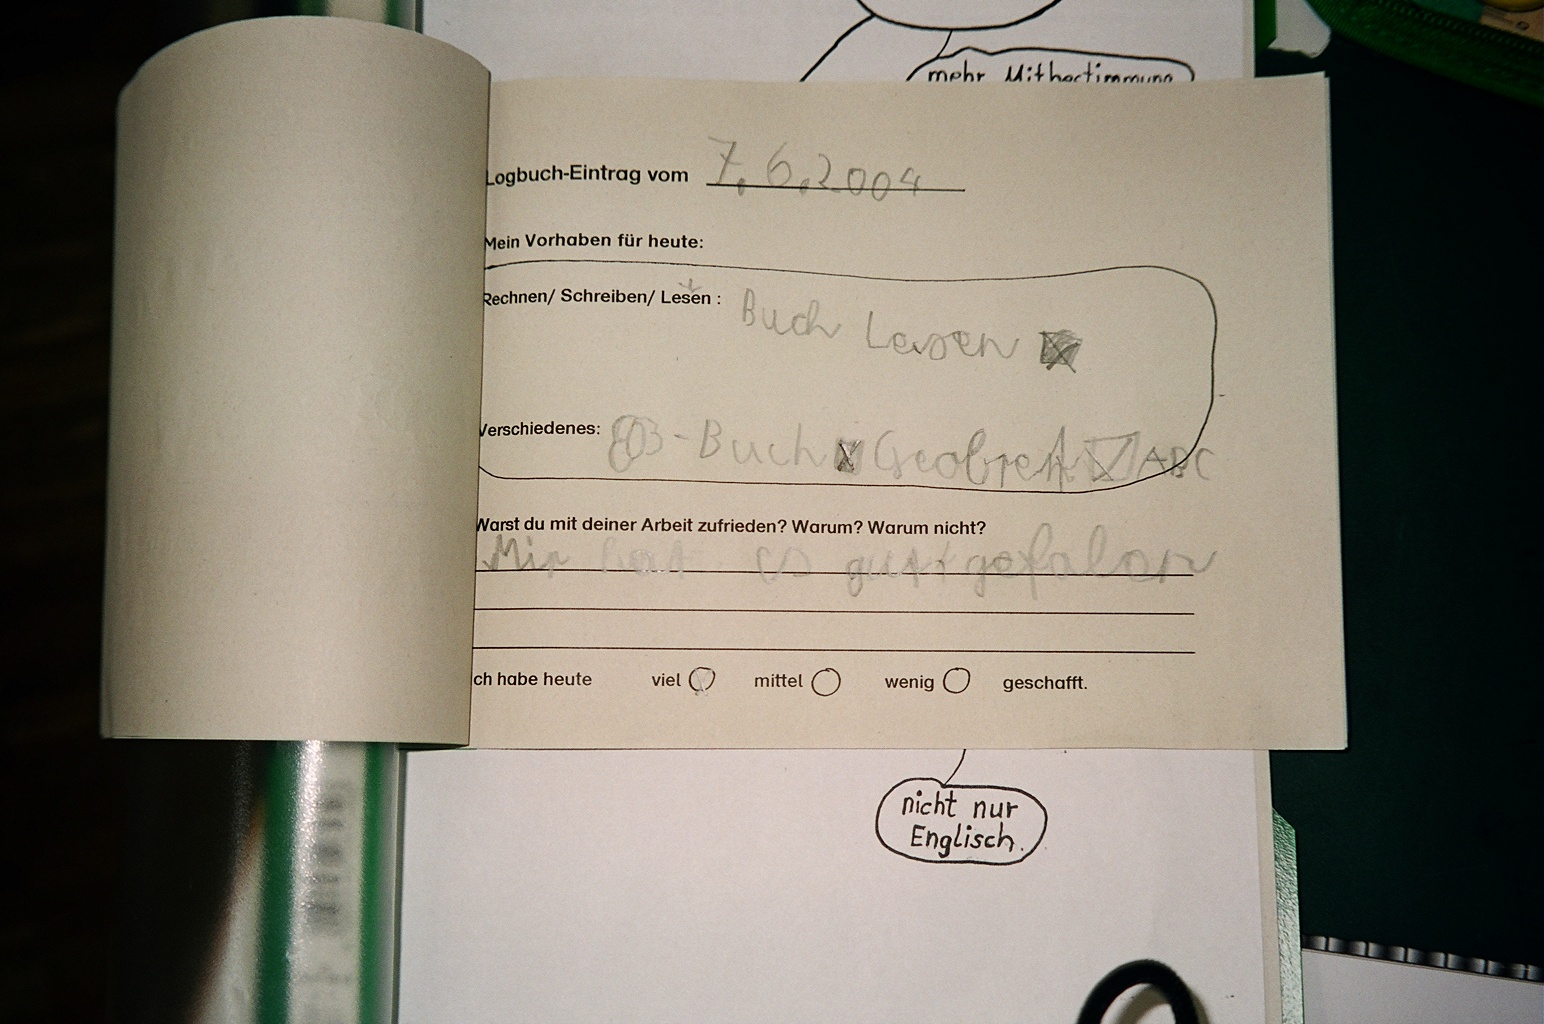 mehr Mitbestimmung
Logbuch-Eintrag vom 7.6.2004
Mein Vorhaben für heute:
Rechnen/ Schreiben/ Lesen : Buch Lesen
Verschiedenes: B-Buch Geobrett ABC
Warst du mit deiner Arbeit zufrieden? Warum? Warum nicht?
Mir hat es gut gefalen
ch habe heute viel mittel wenig geschafft.
nicht nur
Englisch.